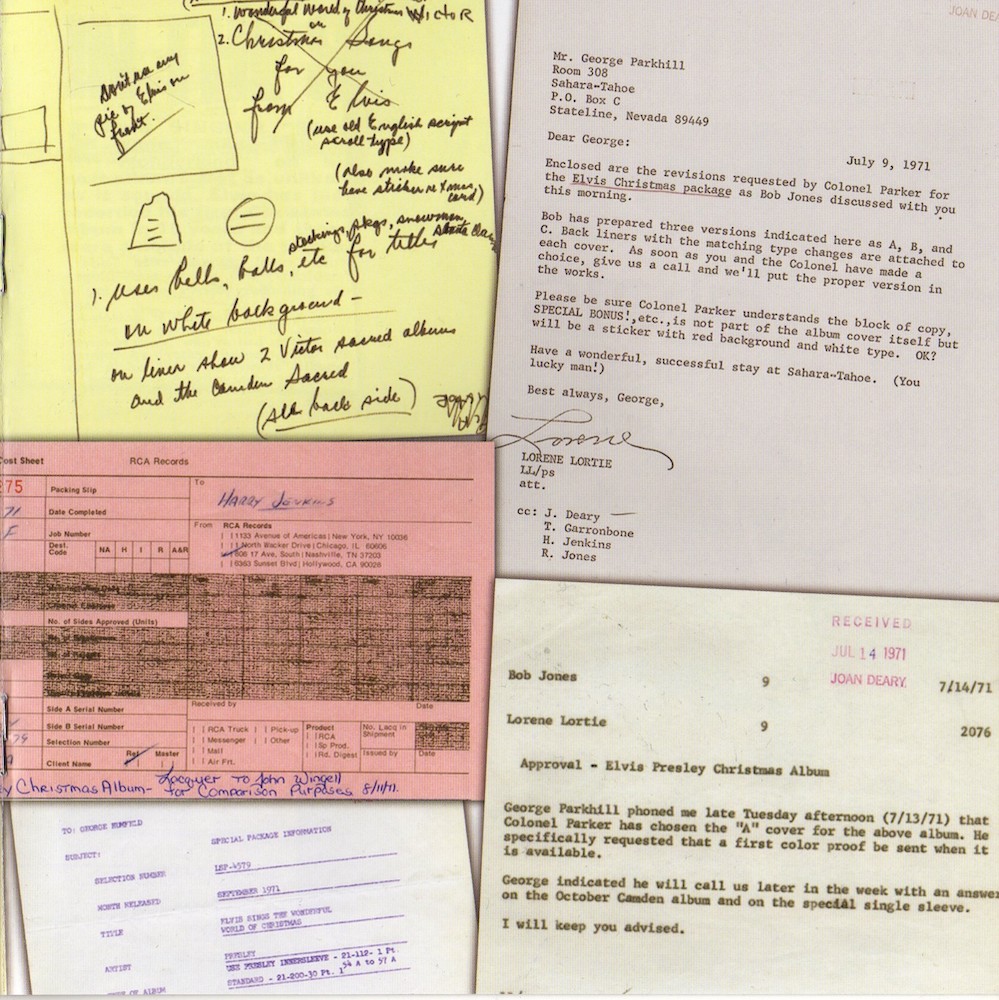 1. Wonderful World of Christmas
VICTOR
2. Christmas Songs
for you
from Elvis
(use old English script
scroll type)
(also make sure
have sticker re Xmas
card)
Don't use any
pic of Elvis on
front.
stockings, pkgs, snowman,
Santa Claus
1. Uses bells, balls, etc for titles
on white background -
on liner show 2 Victor sacred albums
and the Camden Sacred
(all back side)
JOAN DEA
Mr. George Parkhill
Room 308
Sahara-Tahoe
P.O. Box C
Stateline, Nevada 89449
Dear George:
July 9, 1971
Enclosed are the revisions requested by Colonel Parker for
the Elvis Christmas package as Bob Jones discussed with you
this morning.
Bob has prepared three versions indicated here as A, B, and
C. Back liners with the matching type changes are attached to
each cover. As soon as you and the Colonel have made a
choice, give us a call and we'll put the proper version in
the works.
Please be sure Colonel Parker understands the block of copy,
SPECIAL BONUS!,etc.,is not part of the album cover itself but
will be a sticker with red background and white type. OK?
Have a wonderful, successful stay at Sahara-Tahoe. (You
lucky man!)
Best always, George,
Lorene
LORENE LORTIE
LL/ps
att.
cc: J. Deary
T. Garronbone
H. Jenkins
R. Jones
Cost Sheet
RCA Records
275
Packing Slip
To
HARRY JENKINS
71
Date Completed
F
Job Number
From RCA Records
Dest.
Code
NA H I R A&R
1133 Avenue of Americas | New York, NY 10036
1 North Wacker Drive | Chicago, IL 60606
806 17 Ave, South | Nashville, TN 37203
6363 Sunset Blvd | Hollywood, CA 90028
No. of Sides Approved (Units)
Side A Serial Number
Received by
Date
Side B Serial Number
Selection Number
Client Name
Ref Master
RCA Truck
Pick-up
Messenger
Other
Mail
Air Frt.
Product
RCA
Sp Prod.
Rd. Digest
No. Lacq in
Shipment
Issued by
Date
y Christmas Album- Lacquer To John Wingell
for Comparison Purposes 8/11/71.
TO: GEORGE RUMFELD
SPECIAL PACKAGE INFORMATION
SUBJECT:
SELECTION NUMBER
LSP-4579
MONTH RELEASED
SEPTEMBER 1971
TITLE
ELVIS SINGS THE WONDERFUL
WORLD OF CHRISTMAS
ARTIST
PRESLEY
USE PRESLEY INNERSLEEVE - 21-112- 1 Pt.
54 A to 57 A
STANDARD - 21-200-30 Pt. 1
OF ALBUM
RECEIVED
JUL 14 1971
JOAN DEARY
Bob Jones
9
7/14/71
Lorene Lortie
9
2076
Approval - Elvis Presley Christmas Album
George Parkhill phoned me late Tuesday afternoon (7/13/71) that
Colonel Parker has chosen the "A" cover for the above album. He
specifically requested that a first color proof be sent when it
is available.
George indicated he will call us later in the week with an answer
on the October Camden album and on the special single sleeve.
I will keep you advised.